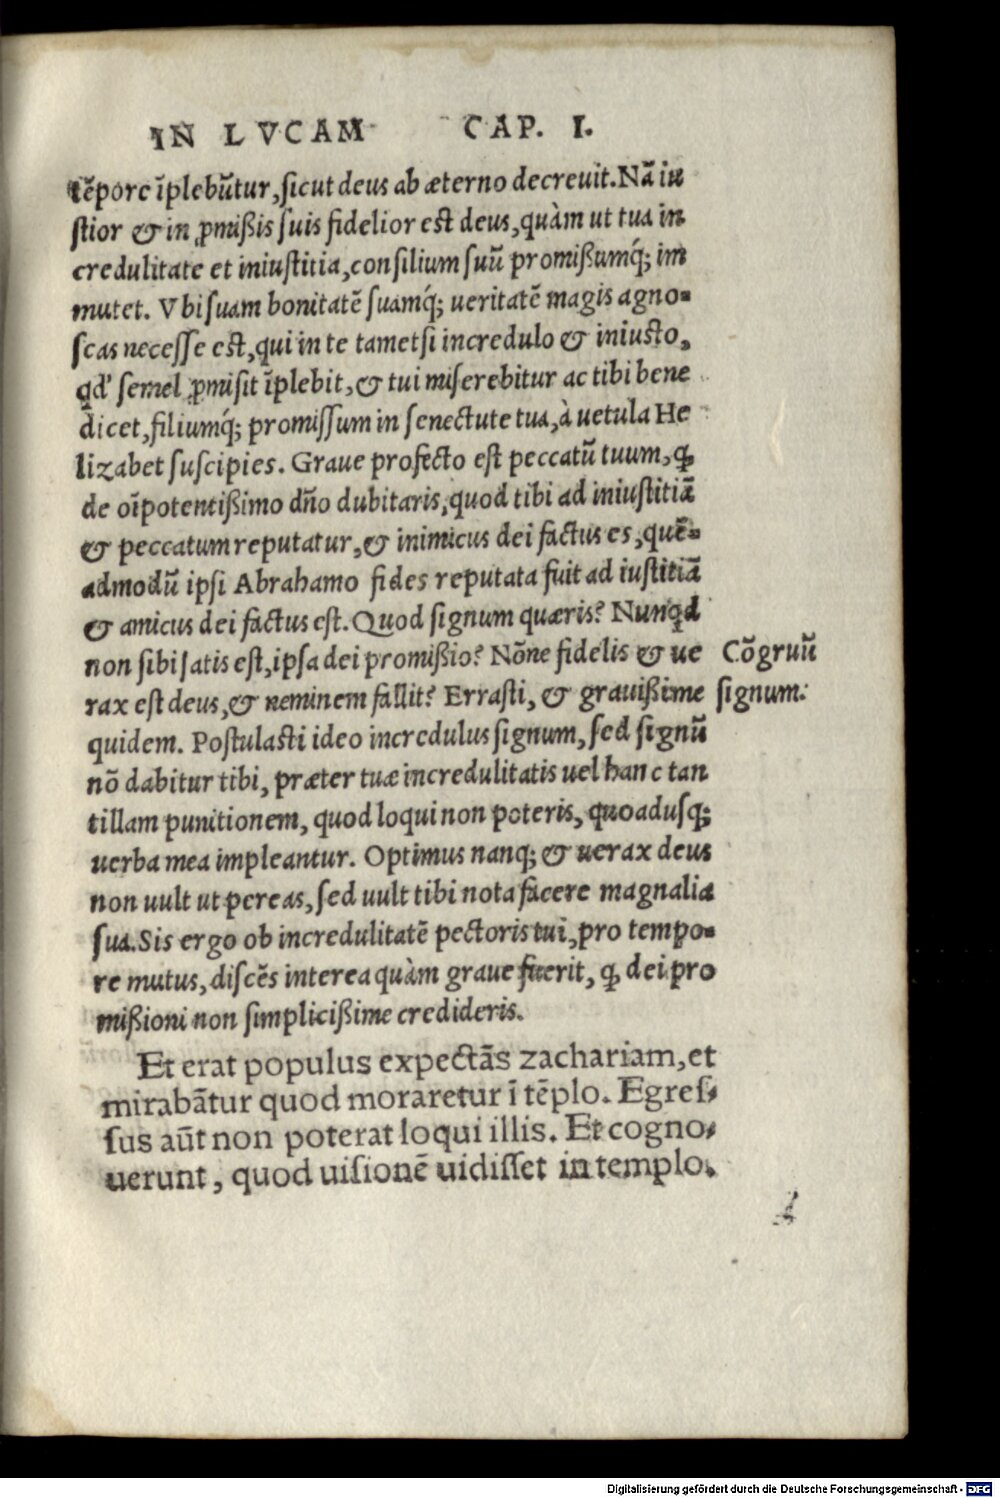 IN LVCAM CAP. I.
tẽpore ĩplebũtur, sicut deus ab æterno decreuit. Nã iu
stior & in ꝓmißis suis fidelior est deus, quàm ut tua in
credulitate et iniustitia, consilium suũ promißumq́; im
mutet. Vbi suam bonitatẽ suamq́; ueritatẽ magis agno-
scas necesse est, qui in te tametsi incredulo & iniusto,
qd' semel ꝓmisit ĩplebit, & tui miserebitur ac tibi bene
dicet, filiumq́; promissum in senectute tua, à uetula He
lizabet suscipies. Graue profecto est peccatũ tuum, ꝙ
de oĩpotentißimo dño dubitaris, quod tibi ad iniustitiã
& peccatum reputatur, & inimicus dei factus es, quẽ-
admodũ ipsi Abrahamo fides reputata fuit ad iustitiã
& amicus dei factus est. Quod signum quæris? Nunqd
non sibi satis est, ipsa dei promißio? Nõne fidelis & ue
rax est deus, & neminem fallit? Errasti, & grauißime
quidem. Postulasti ideo incredulus signum, sed signũ
nõ dabitur tibi, præter tuæ incredulitatis uel hanc tan
tillam punitionem, quod loqui non poteris, quoadusq;
uerba mea impleantur. Optimus nanq; & uerax deus
non uult ut pereas, sed uult tibi nota facere magnalia
sua. Sis ergo ob incredulitatẽ pectoris tui, pro tempo-
re mutus, discẽs interea quàm graue fuerit, ꝙ dei pro
mißioni non simplicißime credideris.
Cõgruũ
signum.
Et erat populus expectãs zachariam, et
mirabãtur quod moraretur ĩ tẽplo. Egres-
sus aũt non poterat loqui illis. Et cogno-
uerunt, quod uisionẽ uidisset in templo.
Digitalisierung gefördert durch die Deutsche Forschungsgemeinschaft - DFG